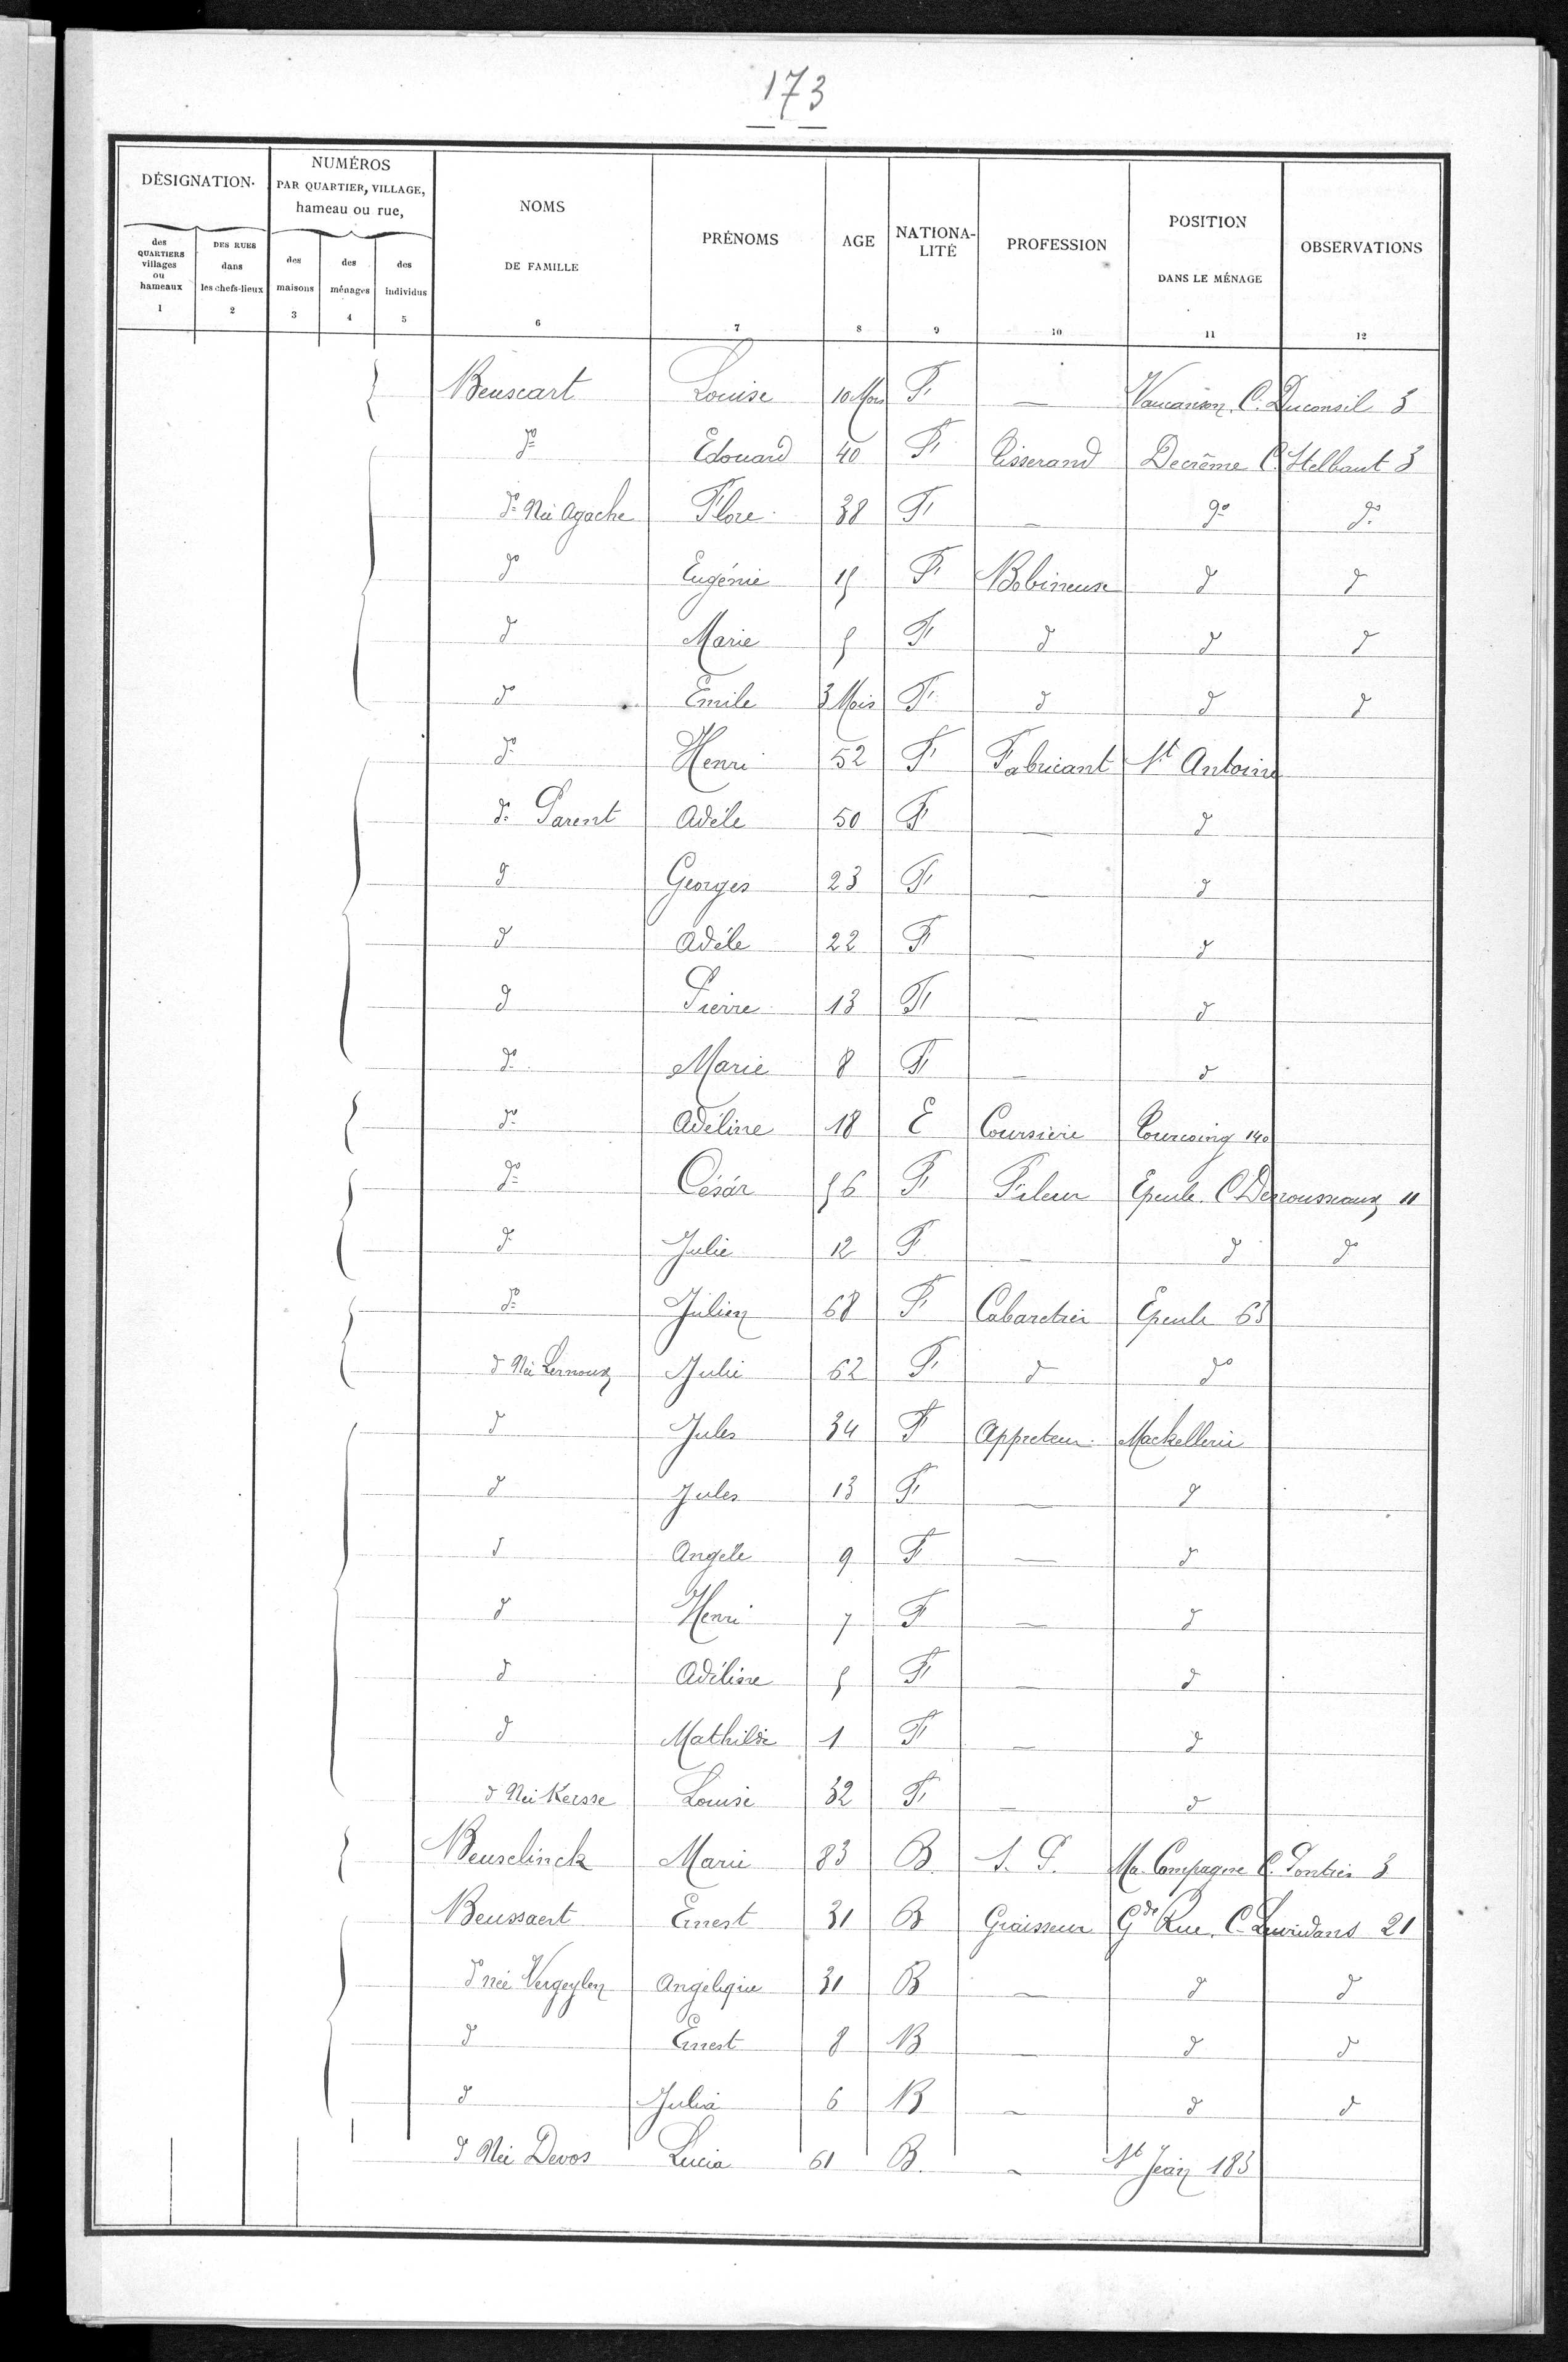 173
DÉSIGNATION.
NUMÉROS
PAR QUARTIER, VILLAGE,
hameau ou rue,
NOMS
DE FAMILLE
PRÉNOMS
AGE
NATIONA-
LITÉ
PROFESSION
POSITION
DANS LE MÉNAGE
OBSERVATIONS
des QUARTIERS villages ou hameaux
DES RUES dans les chefs-lieux
des maisons
des ménages
des individus
1 2 3 4 5 6 7 8 9 10 11 12
Beuscart Louise 10 Mois F — Vaucanson, C. Duconseil 3
do Edouard 40 F Tisserand Decrême C. Helbaut 3
do Née Agache Flore 38 F — do do
do Eugénie 15 F Bobineuse d d
d Marie 5 F d d d
do Emile 3 Mois F d d d
do Henri 52 F Fabricant St Antoine
do Parent Adèle 50 F — d
d Georges 23 F — d
d Adèle 22 F — d
d Pierre 13 F — d
do Marie 8 F — d
do Adéline 18 E Coursière Tourcoing 140
do César 56 F Fileur Epeule C Derousseaux 11
do Julie 12 F — d do
do Julien 68 F Cabaretier Epeule 63
d Née Lernoux Julie 62 F d do
d Jules 34 F Appreteur Mackellerie
d Jules 13 F — d
d Angèle 9 F — d
d Henri 7 F — d
d Adéline 5 F — d
d Mathilde 1 F — d
d Née Kersse Louise 32 F — d
Beuselinck Marie 83 B S. P. Ma Campagne C. Pontier 3
Beussaert Ernest 31 B Graisseur Gde Rue, C. Leuridans 21
d née Vergeylen Angélique 31 B — d d
d Ernest 8 B — d d
d Julia 6 B — d d
d Née Devos Lucia 61 B. — St Jean 183